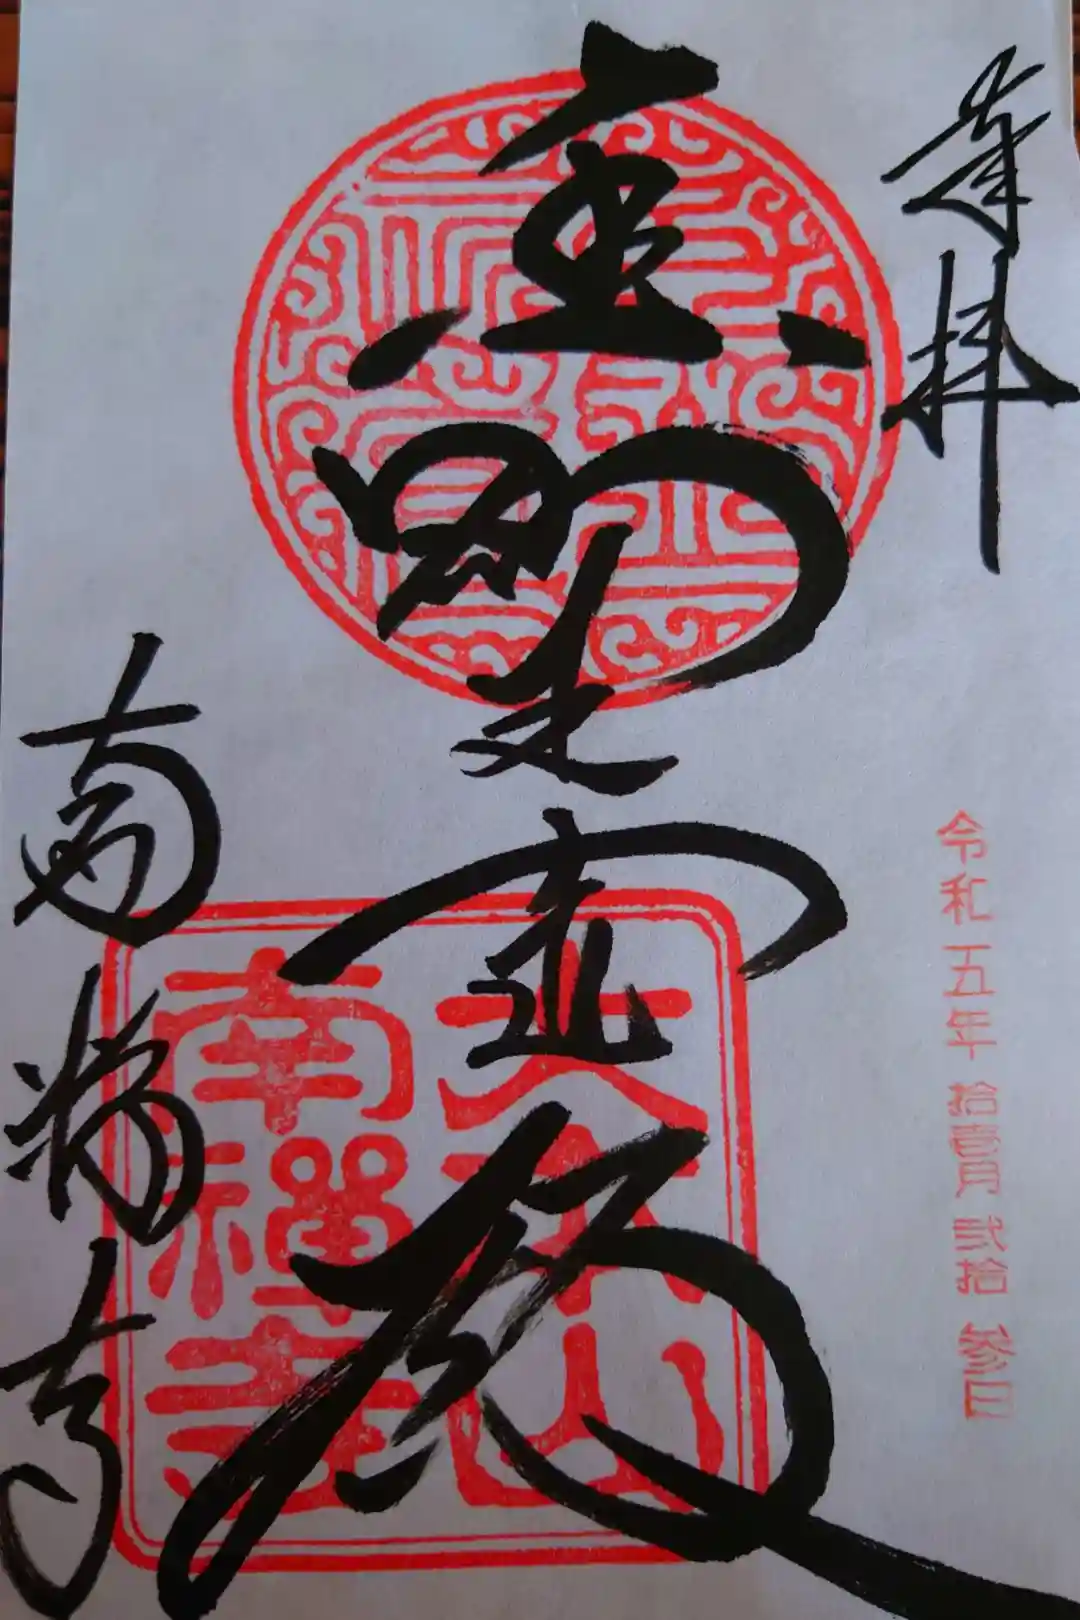 奉拝
令和五年拾壹月弐拾参日
金剛王宝殿
大本山
南禪寺
南禅寺